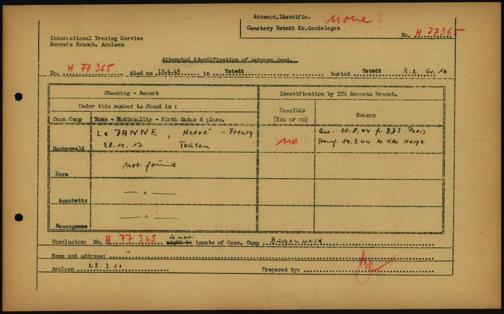 Attempt. Identific. None
Cemetery Estedt Kr. Gardelegen
No. H 77365
International Tracing Service
Records Branch, Arolsen
Attempted identification of unknown dead.
No. H 77365 died on in Estedt buried Estedt R.2 Gr.16
Checking - Report
Identification by ITS Records Branch.
Under this number is found in :
Possible
(Yes or no)
Reason
Conc. Camp
Name - Nationality - Birth dates & place.
Le JANNE, Hervé - French
Buchenwald
28.11.17 Toulon
no
Arr. 20.8.44 fr. Paris
Transf. 14.9.44 to Kdo
Dora
not found
Auschwitz
— " —
Neuengamme
— " —
Conclusion: No. H 77365 is not inmate of Conc. Camp Buchenwald
Name and address: -
Arolsen 29.3.51 Prepared by: